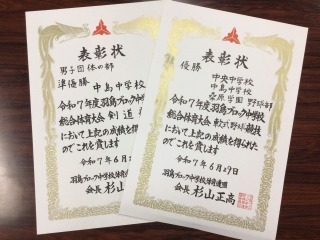 表彰状
男子団体の部
準優勝
中島中学校
令和7年度羽島ブロック中
総合体育大会 剣道
において上記の成績を得られた
のでこれを賞します
令和7年6月
羽島ブロック中学校体育連盟
会長 杉山
表彰状
優勝
中央中学校
中島中学校
桑原学園 野球部
令和7年度羽島ブロック中学校
総合体育大会 軟式野球競技
において上記の成績を得られた
のでこれを賞します
令和7年6月29日
羽島ブロック中学校体育連盟
会長 杉山正高